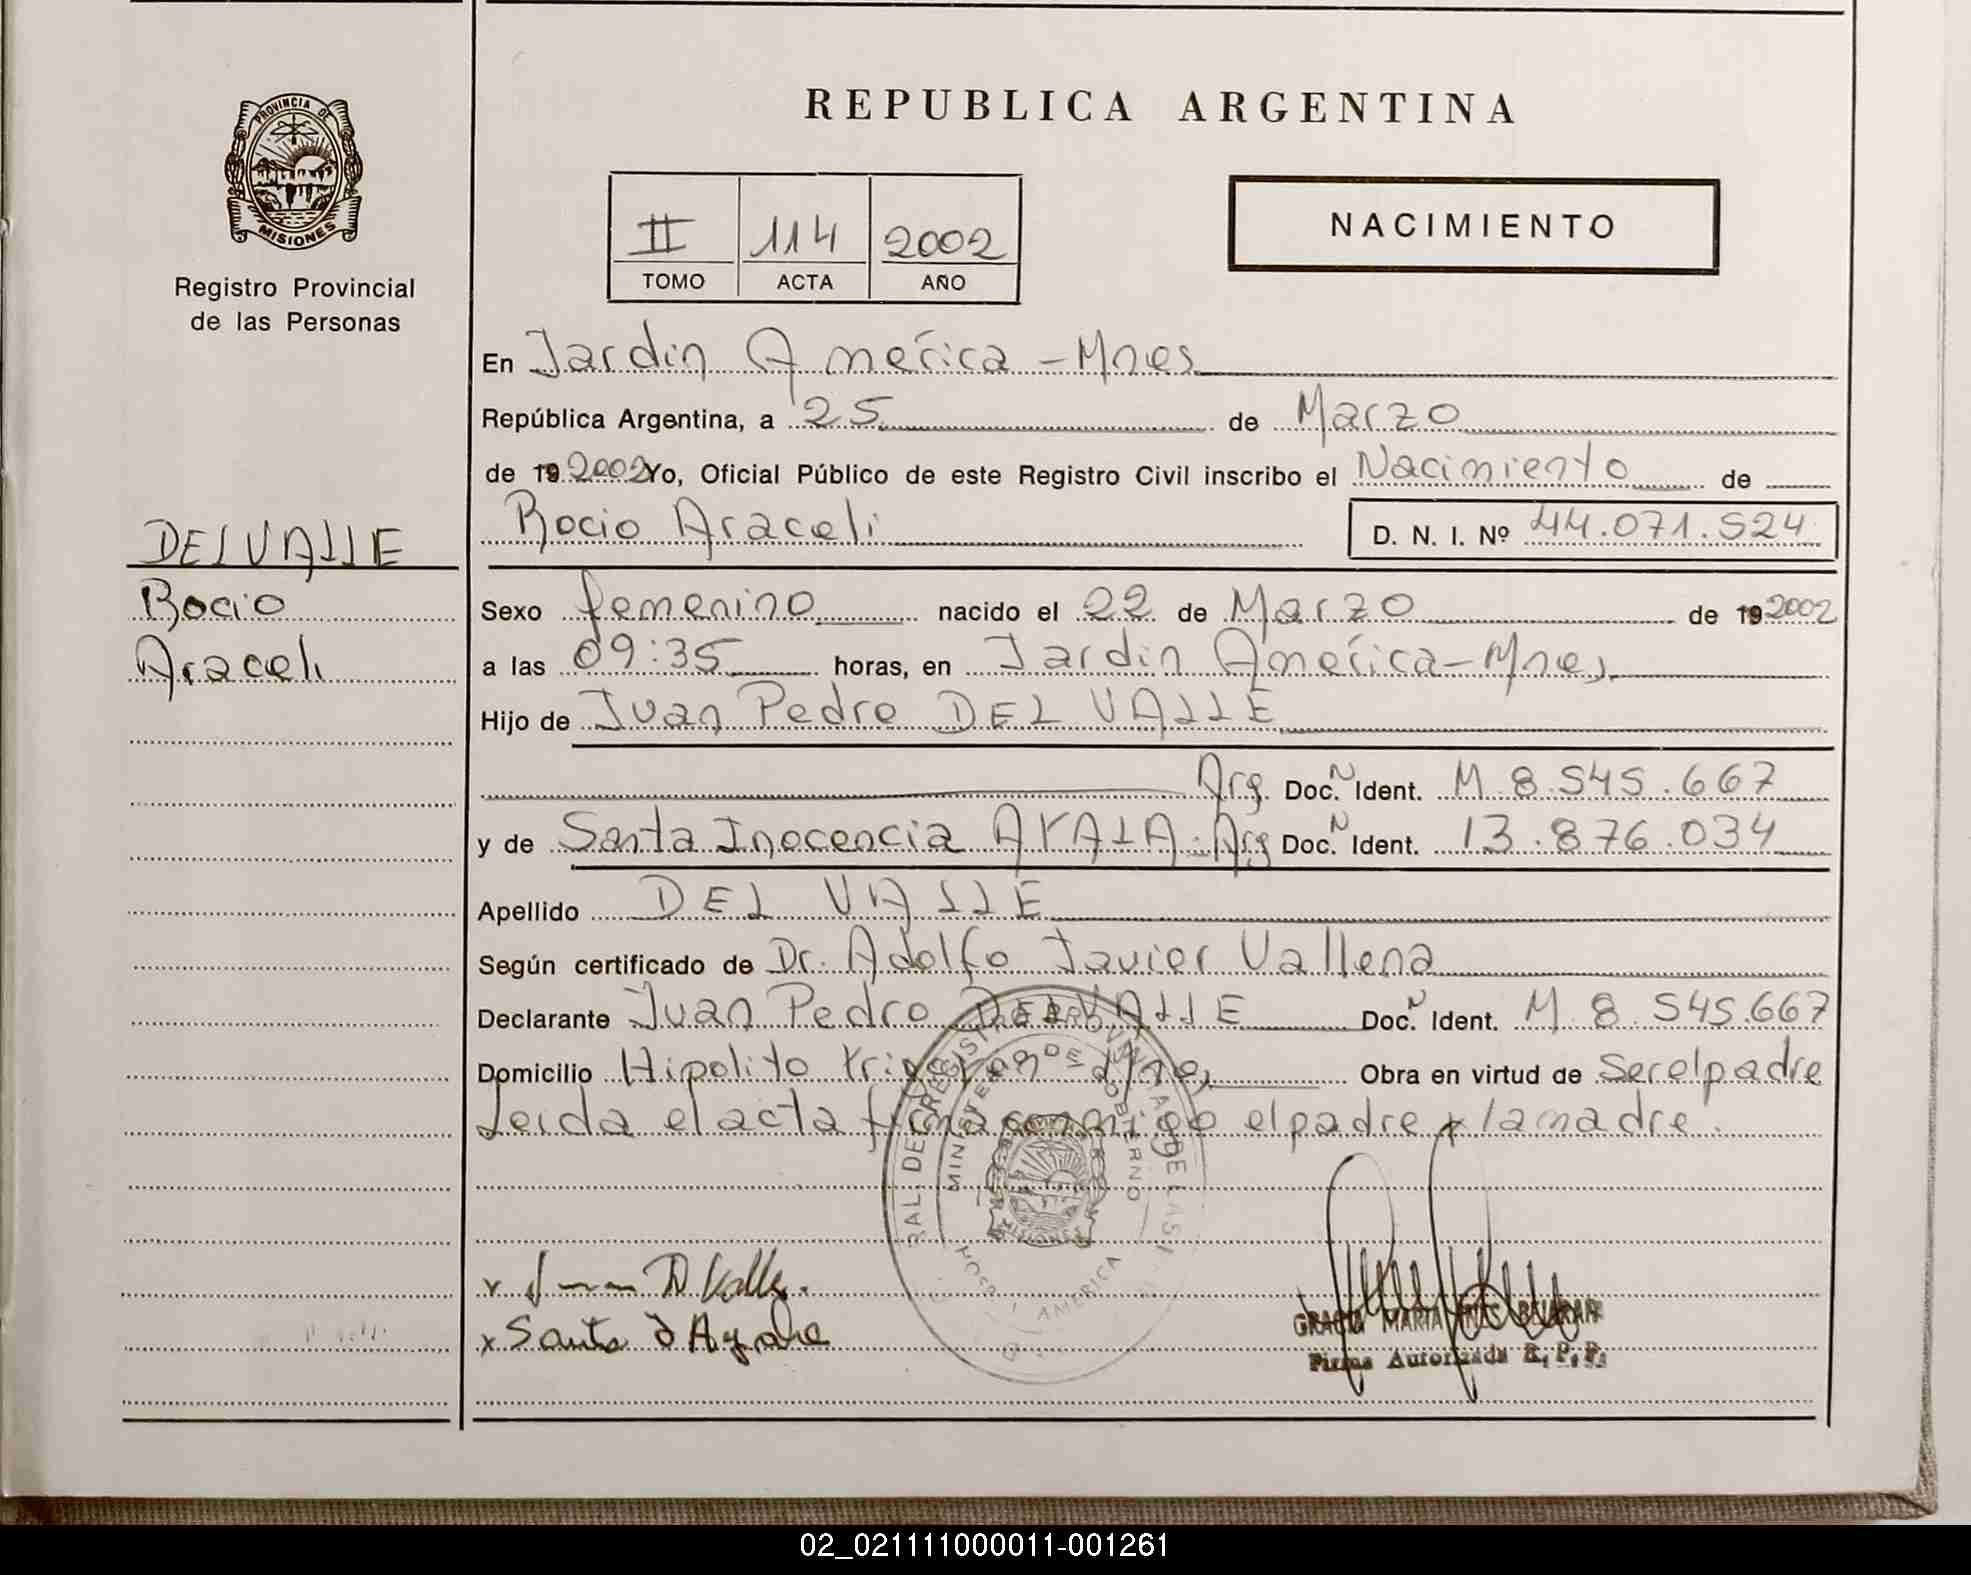 PROVINCIA DE
MISIONES
Registro Provincial
de las Personas
DEL VALLE
Rocio
Araceli
REPUBLICA ARGENTINA
II 114 2002
TOMO ACTA AÑO
NACIMIENTO
En Jardin América - Mnes
República Argentina, a 25 de Marzo
de 19 2002 Yo, Oficial Público de este Registro Civil inscribo el Nacimiento de
Rocio Araceli D. N. I. Nº 44.071.524
Sexo femenino nacido el 22 de Marzo de 19 2002
a las 09:35 horas, en Jardin América - Mnes,
Hijo de Juan Pedro DEL VALLE
Arg. Doc. N Ident. M 8.545.667
y de Santa Inocencia AYALA. Arg Doc. N Ident. 13.876.034
Apellido DEL VALLE
Según certificado de Dr. Adolfo Javier Vallena
Declarante Juan Pedro DEL VALLE Doc. N Ident. M 8.545.667
Domicilio Hipolito Yrigoyen - Mnes, Obra en virtud de Ser el padre
Leida el acta firma conmigo el padre y la madre.
MINISTERIO DE GOBIERNO
MISIONES
AMERICA
x Juan D Valle.
x Santa d Ayala
GRACIA MARIA
Firma Autorizada R. P. P.
02_021111000011-001261